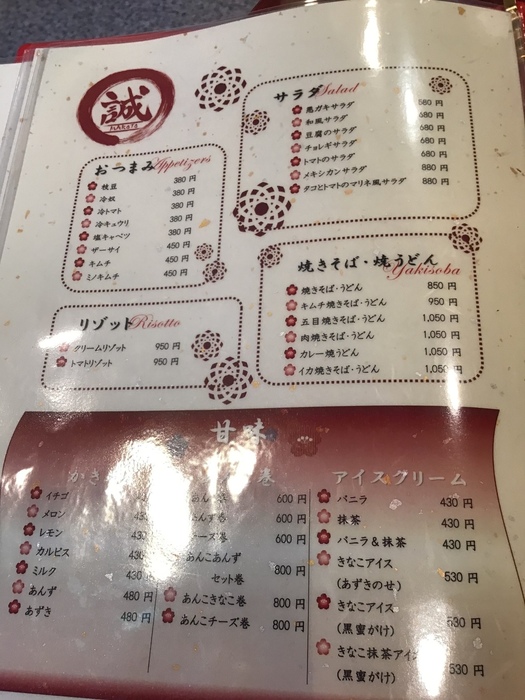 誠
MAKOTO
おつまみ Appetizers
枝豆 380 円
冷奴 380 円
冷トマト 380 円
冷キュウリ 380 円
塩キャベツ 380 円
ザーサイ 450 円
キムチ 450 円
ミノキムチ 450 円
リゾット Risotto
クリームリゾット 950 円
トマトリゾット 950 円
サラダ Salad
悪ガキサラダ 580 円
和風サラダ 680 円
豆腐のサラダ 680 円
チョレギサラダ 680 円
トマトのサラダ 680 円
メキシカンサラダ 880 円
タコとトマトのマリネ風サラダ 880 円
焼きそば・焼うどん Yakisoba
焼きそば・うどん 850 円
キムチ焼きそば・うどん 950 円
五目焼きそば・うどん 1,050 円
肉焼きそば・うどん 1,050 円
カレー焼うどん 1,050 円
イカ焼きそば・うどん 1,050 円
甘味
かき
イチゴ
メロン
レモン
カルピス
ミルク 430
あんず 480 円
あずき 480 円
巻
600 円
600 円
600 円
あんこあんず
セット巻 800 円
あんこきなこ巻 800 円
あんこチーズ巻 800 円
アイスクリーム
バニラ 430 円
抹茶 430 円
バニラ&抹茶 430 円
きなこアイス
(あずきのせ) 530 円
きなこアイス
(黒蜜がけ) 530 円
きなこ抹茶アイス
(黒蜜がけ) 530 円